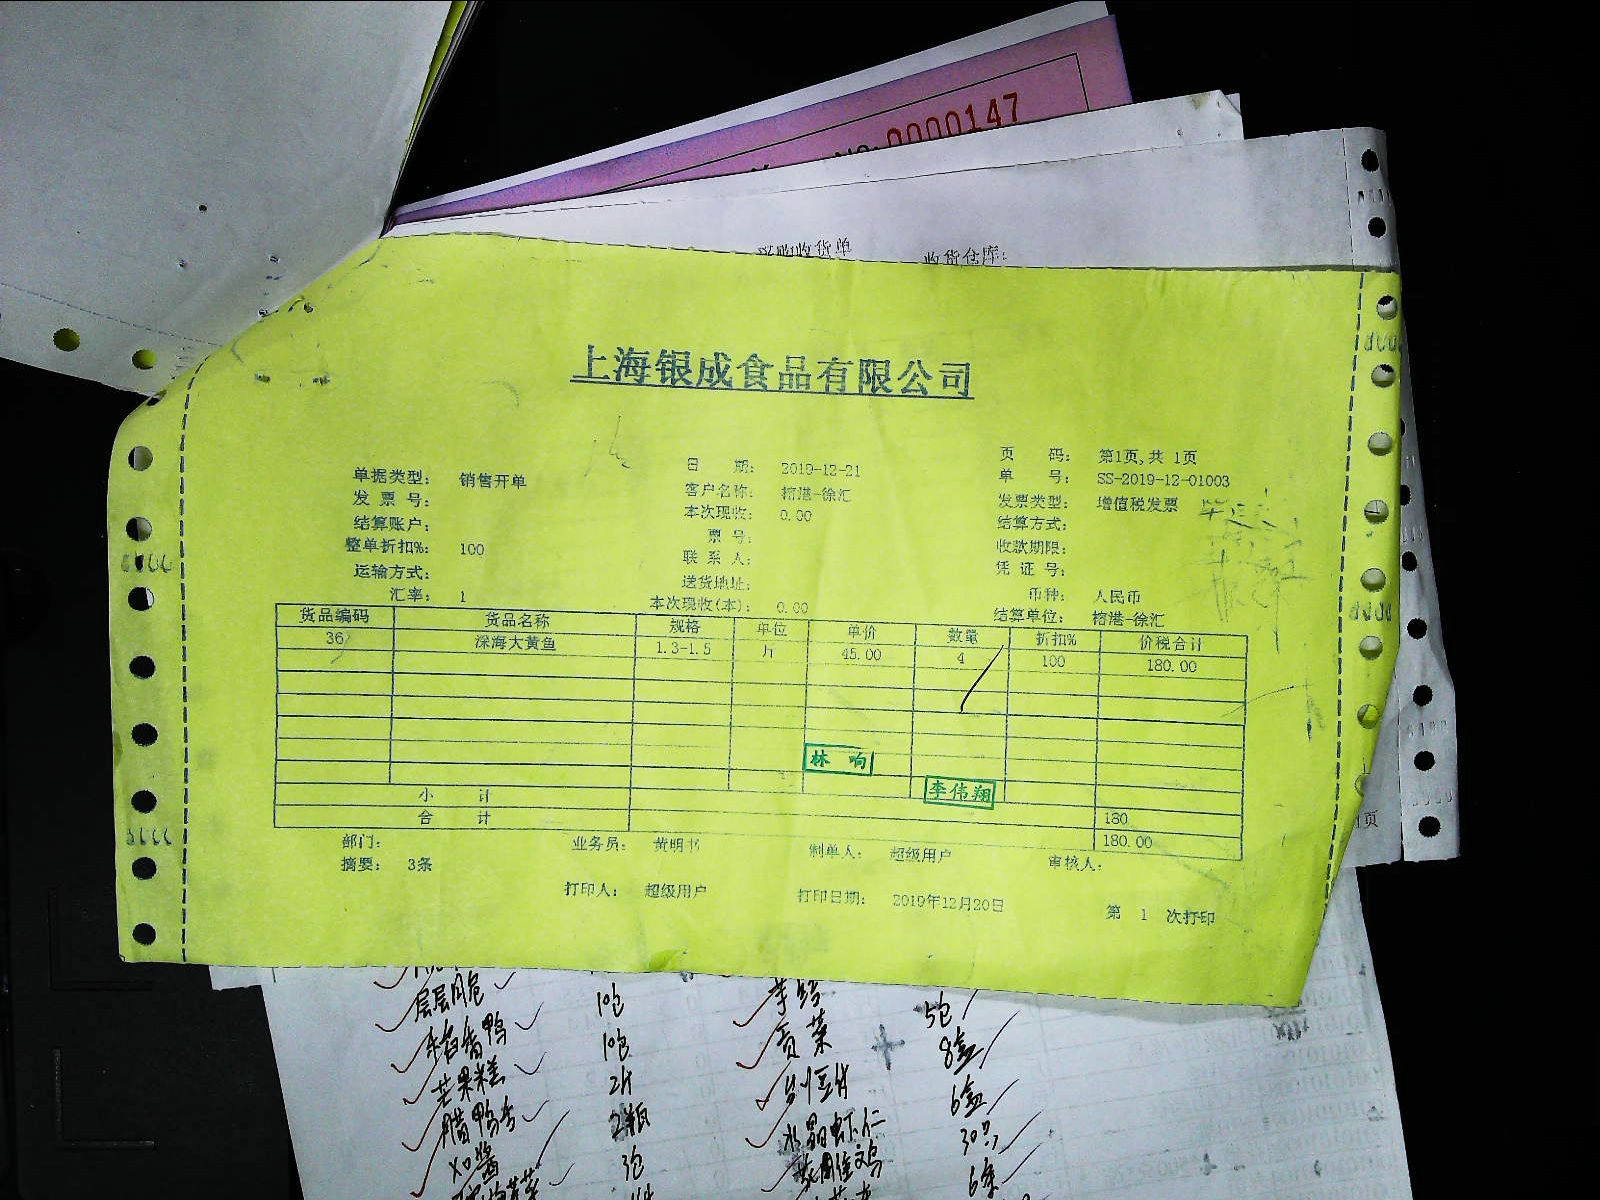 No:0000147
采购收货单 收货仓库:
上海银成食品有限公司
单据类型: 销售开单 日 期: 2019-12-21 页 码: 第1页,共 1页
发 票 号: 客户名称: 榕港-徐汇 单 号: SS-2019-12-01003
结算账户: 本次现收: 0.00 发票类型: 增值税发票
整单折扣%: 100 票 号: 结算方式:
运输方式: 联 系 人: 收款期限:
汇率: 1 送货地址: 凭 证 号:
本次现收(本): 0.00 币种: 人民币
结算单位: 榕港-徐汇
货品编码 货品名称 规格 单位 单价 数量 折扣% 价税合计
36 深海大黄鱼 1.3-1.5 斤 45.00 4 100 180.00
林 响
李伟翔
小 计 180
合 计 180.00
部门: 业务员: 黄明书 制单人: 超级用户 审核人:
摘要: 3条
打印人: 超级用户 打印日期: 2019年12月20日 第 1 次打印
页
10包 5包
香鸭 10包 贡菜 8盒
芒果糕 2斤 6盒
腊鸭 2瓶 水晶虾仁 30只
XO酱 3包 6条